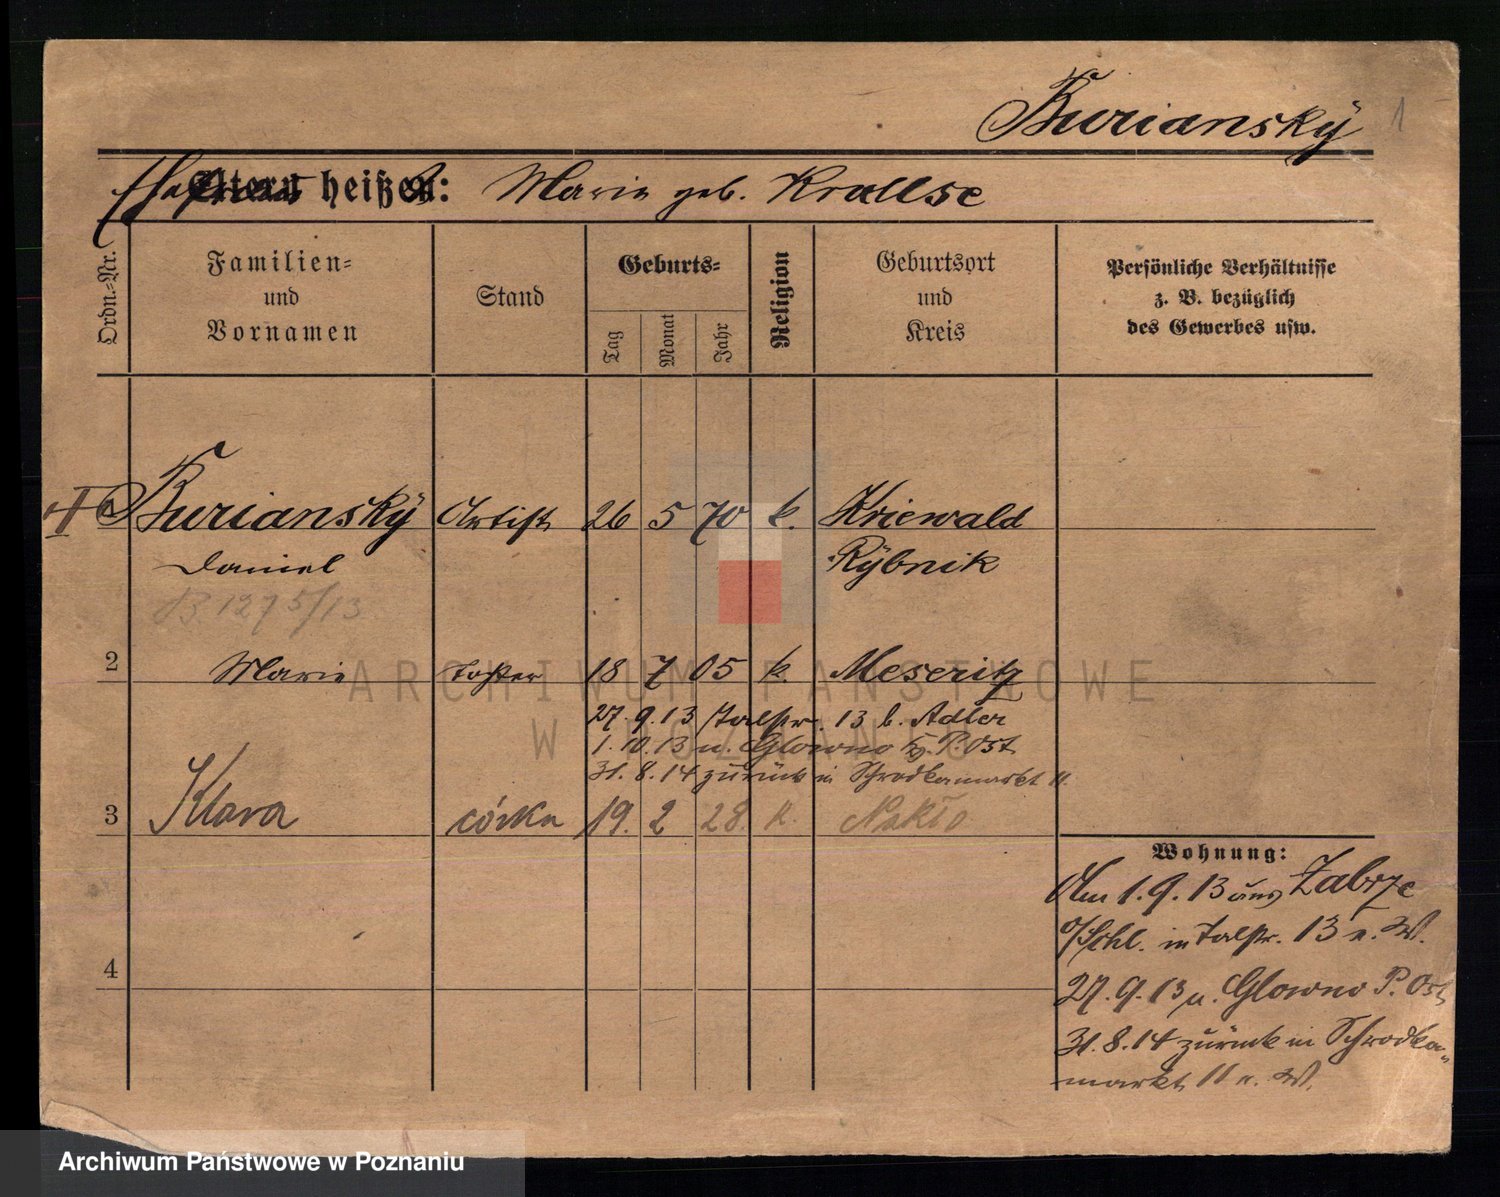 Buriansky 1
Ehefrau heißt: Marie geb. Krallse
Ordn.=Nr.
Familien=
und
Vornamen
Stand
Geburts=
Tag
Monat
Jahr
Religion
Geburtsort
und
Kreis
Persönliche Verhältnisse
z. B. bezüglich
des Gewerbes usw.
1 Buriansky Artist 26 5 70 k. Kriewald
Daniel Rybnik
B. 1275/13
2 Marie Tochter 18 7 05 k. Meseritz
27. 9. 13 Talstr. 13 b. Adler
1. 10. 13 n. Glowno Kr. P. Ost
31. 8. 14 zurück in Schrodkamarkt 11.
3 Klara córka 19. 2 28. k. Nakło
4
Wohnung:
Am 1. 9. 13 aus Zabrze
O/Schl. in Talstr. 13 e. W.
27. 9. 13 n. Glowno P. Ost
31. 8. 14 zurück in Schrodka-
markt 11 e. W.
ARCHIWUM PAŃSTWOWE
W POZNANIU
Archiwum Państwowe w Poznaniu